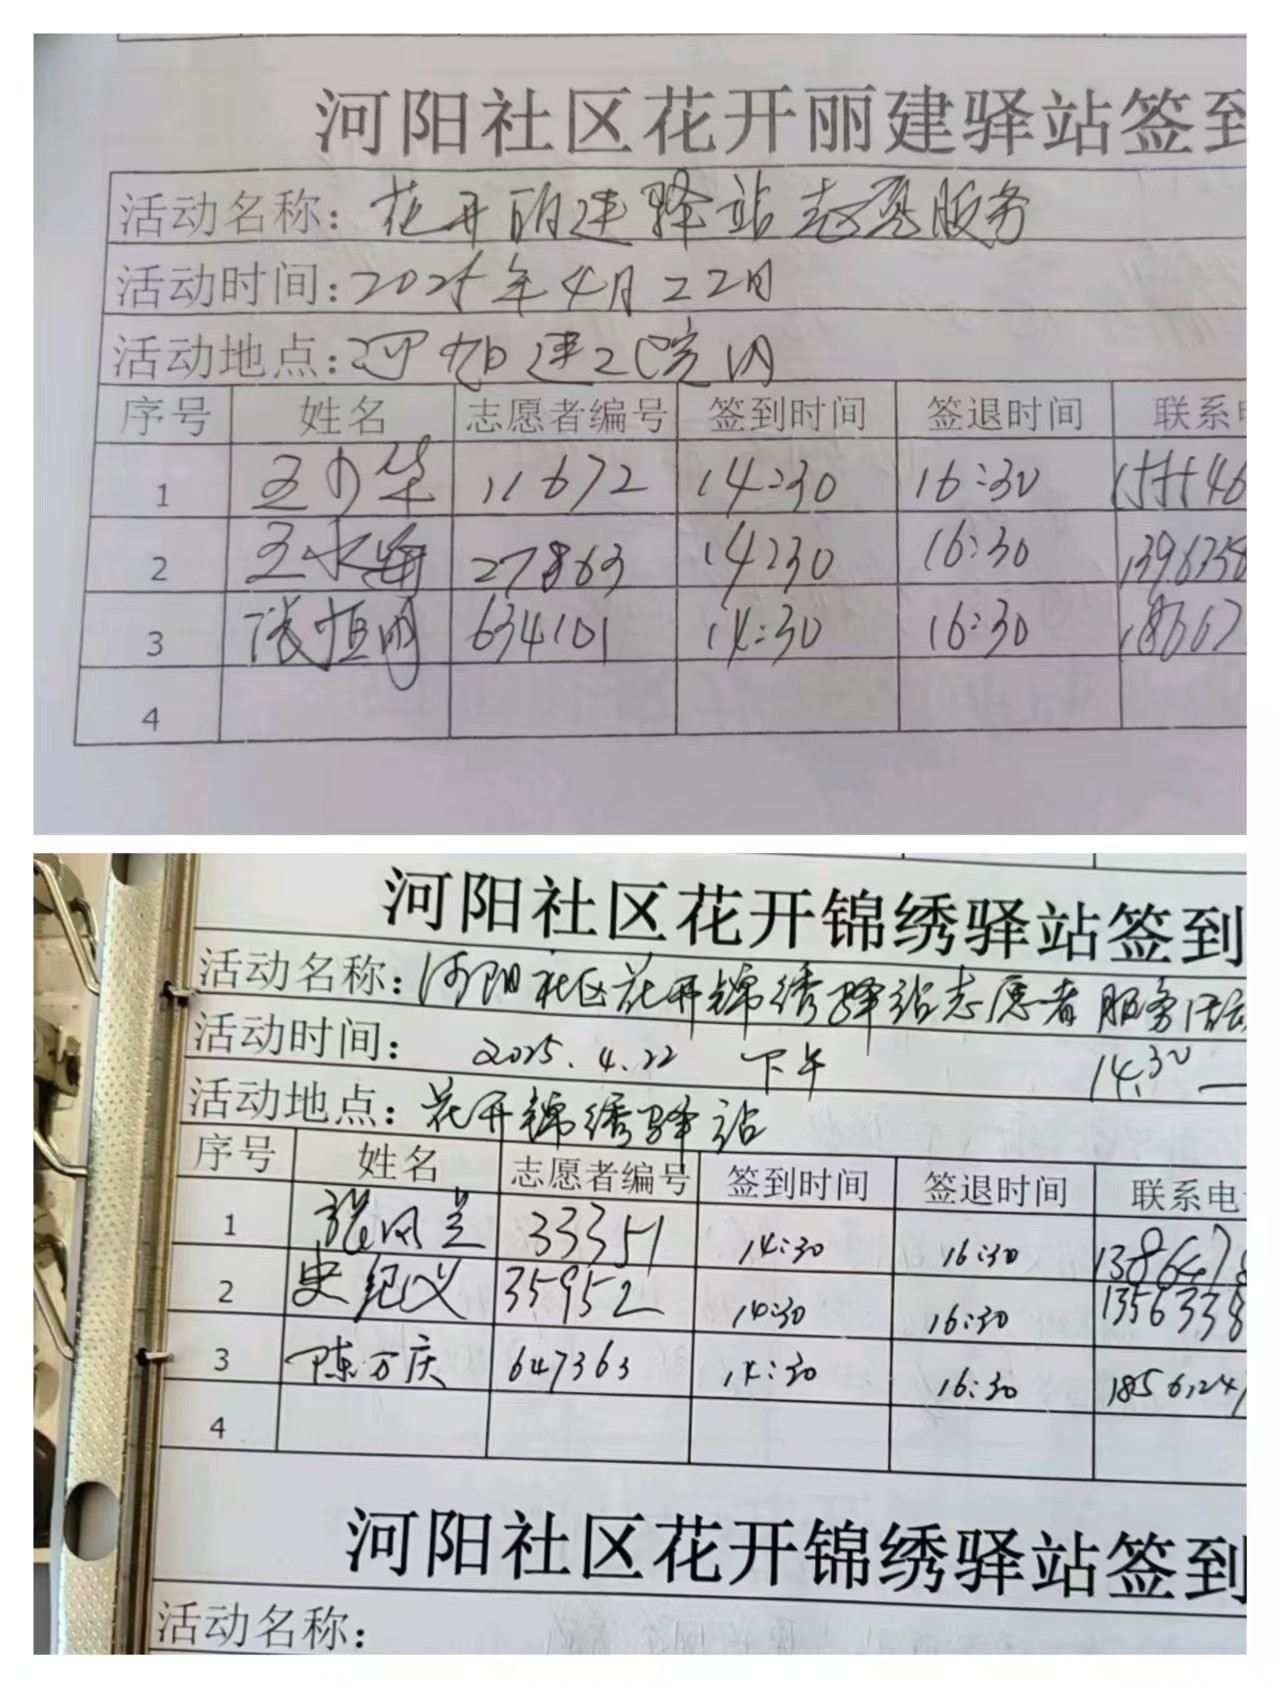 河阳社区花开丽建驿站签到
活动名称：花开丽建驿站志愿服务
活动时间：2025年4月22日
活动地点：河阳建工院内
序号 姓名 志愿者编号 签到时间 签退时间 联系电
1 11672 14:30 16:30
2 27863 14:30 16:30 1396358
3 张恒明 634101 14:30 16:30 18667
4
河阳社区花开锦绣驿站签到
活动名称：河阳社区花开锦绣驿站志愿者服务活动
活动时间： 2025.4.22 下午 14:30—
活动地点：花开锦绣驿站
序号 姓名 志愿者编号 签到时间 签退时间 联系电
1 张风兰 33351 14:30 16:30 138647
2 史纪义 35952 14:30 16:30 1356338
3 陈万庆 647363 14:30 16:30 1856124
4
河阳社区花开锦绣驿站签到
活动名称：